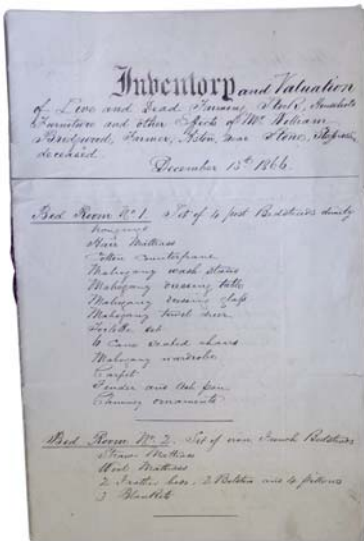 Inventory and Valuation
of Live and Dead Farming Stock, Household
Furniture and other Effects of Mr. William
Bridgwood, Farmer, Aston, near Stone,
deceased.
December 13th 1866.
Bed Room No. 1. Set of 4 post Bedsteads dimity
hangings
Hair Mattress
Cotton Counterpane
Mahogany wash stand
Mahogany dressing table
Mahogany dressing glass
Mahogany towel
Toilette set
6 Cane seated chairs
Mahogany wardrobe
Carpet
Fender and Ash pan
Chimney ornaments
Bed Room No. 2. Set of iron French Bedsteads
Straw Mattress
Wool Mattress
2 Feather beds, 2 Bolsters and 4 pillows
3 Blankets